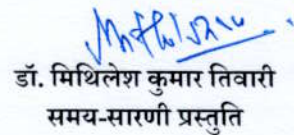 डॉ. मिथिलेश कुमार तिवारी
समय-सारणी प्रस्तुति